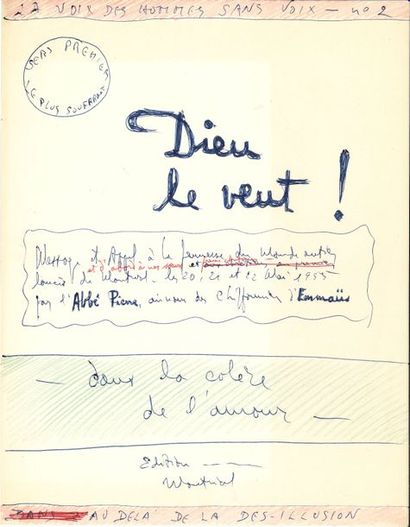 LA VOIX DES HOMMES SANS VOIX — no 2
SERS PREMIER
LE PLUS SOUFFRANT
Dieu
le veut !
Message et Appel à la jeunesse du Monde entier
et d'abord à nos
lancés de Montréal - les 20, 21 et 22 Mai 1955
par l'Abbé Pierre, au nom des Chiffonniers d'Emmaüs
— dans la colère
de l'amour —
Edition
Montréal
DANS AU DELÀ DE LA DES-ILLUSION